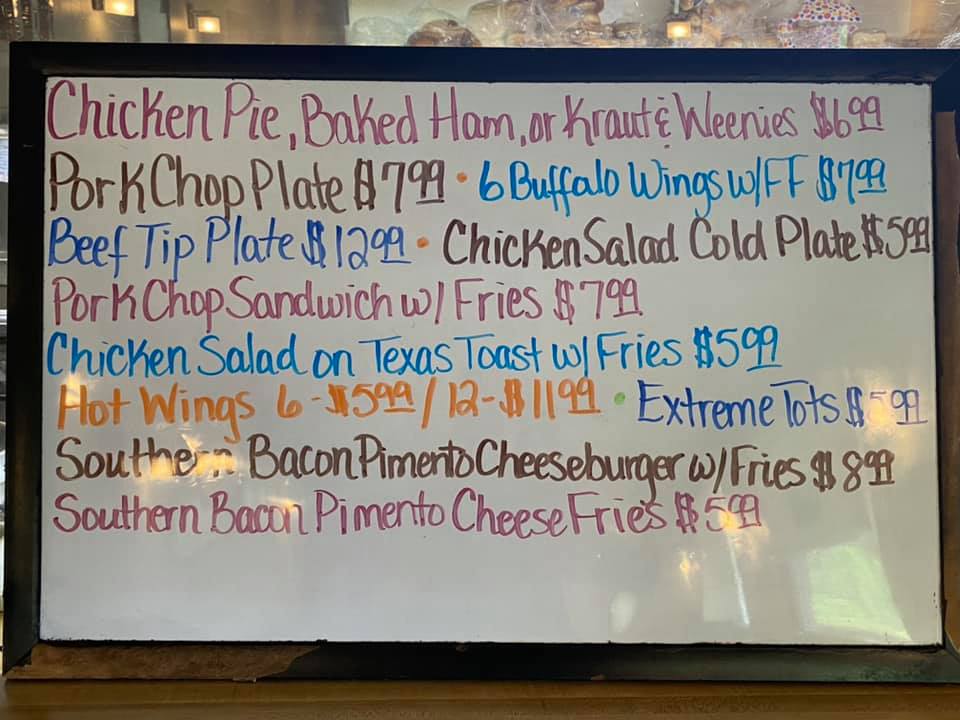 Chicken Pie, Baked Ham, or Kraut & Weenies $6.99
Pork Chop Plate $7.99 • 6 Buffalo Wings w/ FF $7.99
Beef Tip Plate $12.99 • Chicken Salad Cold Plate $5.99
Pork Chop Sandwich w/ Fries $7.99
Chicken Salad on Texas Toast w/ Fries $5.99
Hot Wings 6 - $5.99 / 12 - $11.99 • Extreme Tots $5.99
Southern Bacon Pimento Cheeseburger w/ Fries $8.99
Southern Bacon Pimento Cheese Fries $5.99